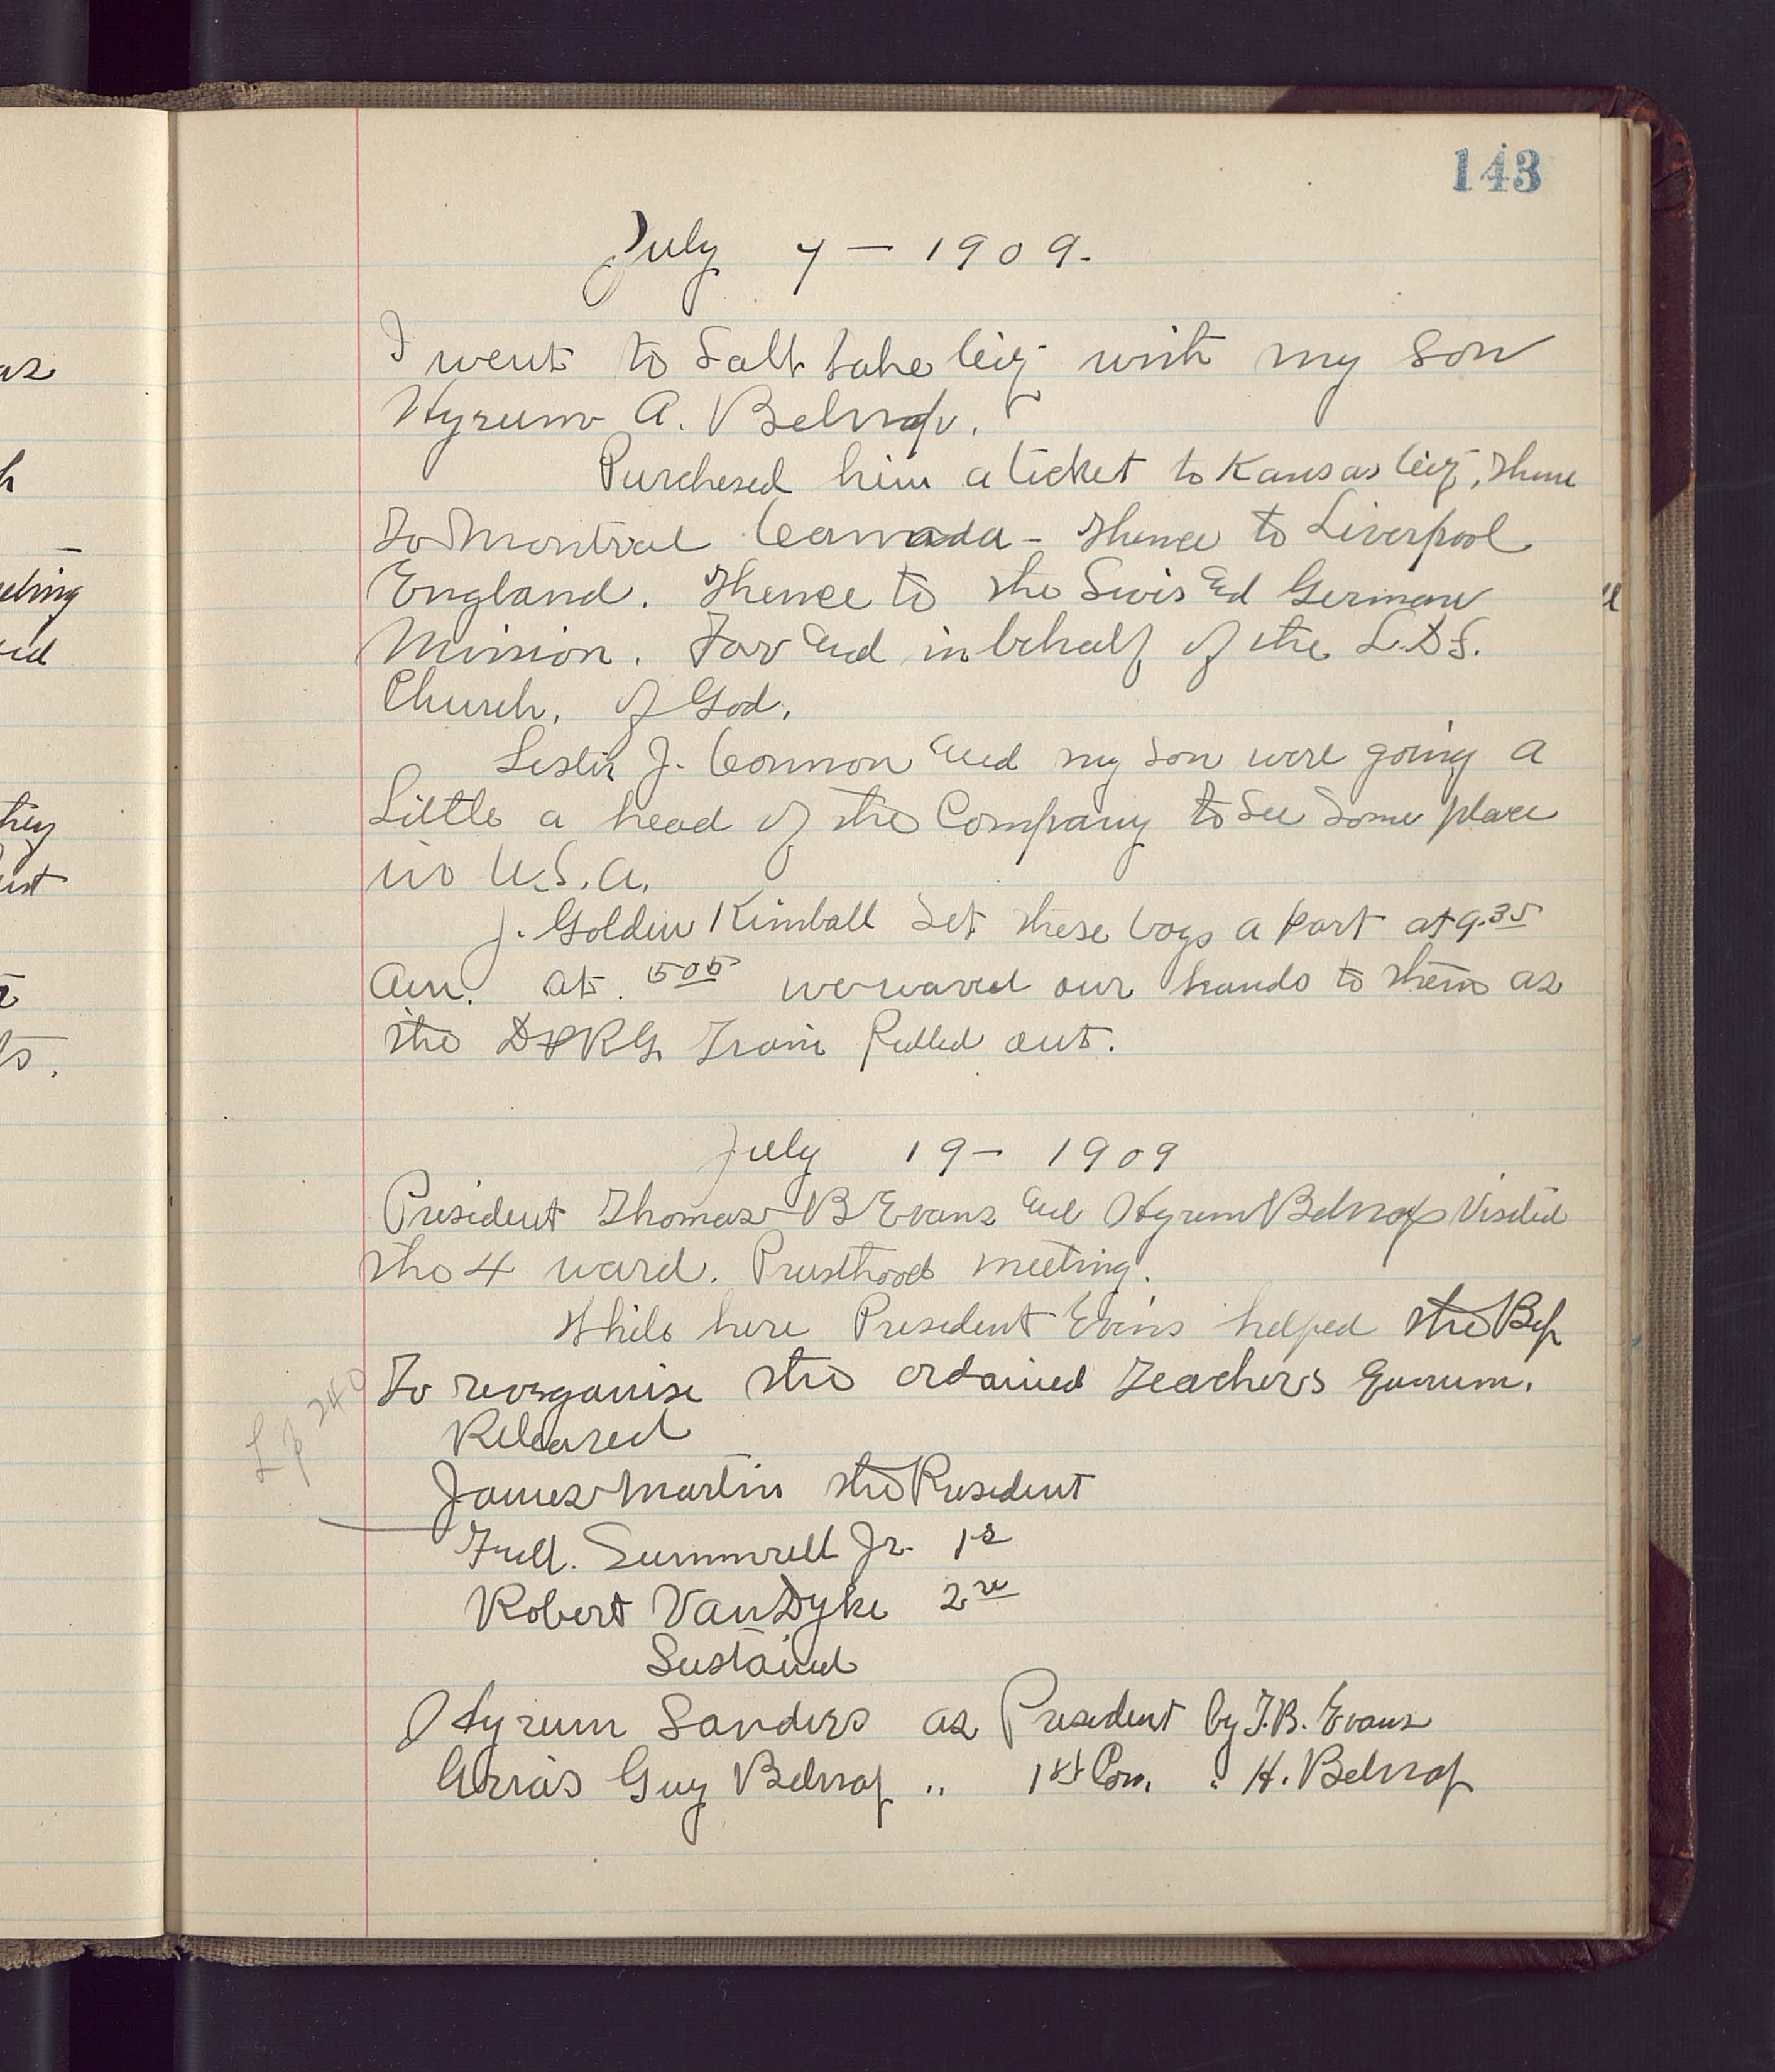 143
July 7 — 1909.
I went to Salt Lake City with my son
Hyrum A. Belnap.
Purchesed him a ticket to Kansas City, thence
to Montreal Canada - thence to Liverpool
England. Thence to the Swis and German
Mission. For and in behalf of the L.D.S.
Church, of God.
Leslie J. Connon and my son were going a
Little a head of the Company to see some place
in U.S.A.
J. Golden Kimball set these boys a part at 9.35
am. at 5 05 we waved our hands to them as
the D&RG Train pulled out.
July 19 - 1909
President Thomas B Evans and Hyrum Belnap visited
the 4 ward. Priesthood meeting.
While here President Evans helped the Bp
to reorganise the ordained Teachers Quorum.
Released
James Martin the President
Summrell Jr. 1s
Robert VanDyke 2
Sustained
Hyrum Sanders as President by T.B. Evans
Arias Guy Belnap " 1st Con. " H. Belnap
L p 240